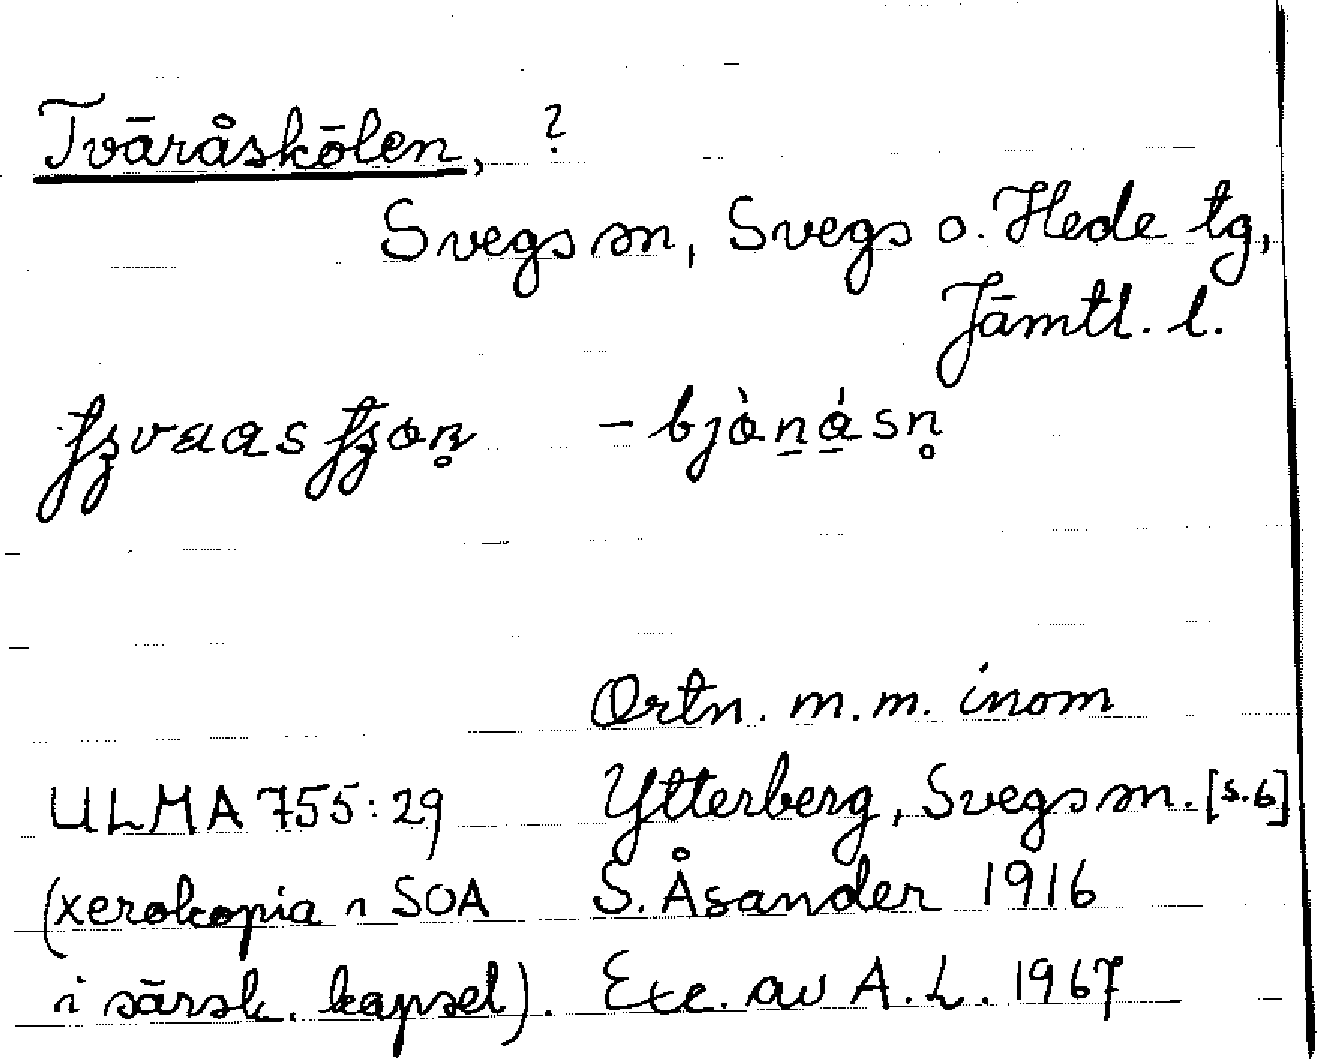 Tväråskölen, ?
Svegs sn, Svegs o. Hede tg,
Jämtl. l.
Ortn. m.m. inom
ULMA 755:29 Ytterberg, Svegs sn. [s.6]
(xerokopia i SOA S. Åsander 1916
i särsk. kapsel). Exc. av A.L. 1967